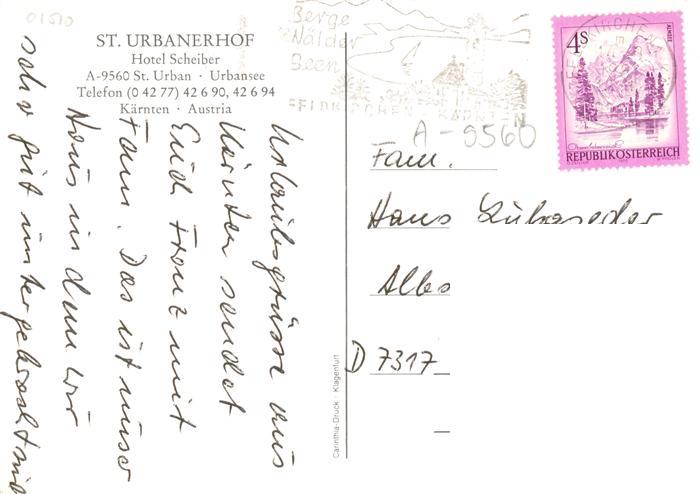 01510
ST. URBANERHOF
Hotel Scheiber
A-9560 St. Urban · Urbansee
Telefon (0 42 77) 42 6 90, 42 6 94
Kärnten · Austria
Urlaubsgrüsse aus
Kärnten sendet
Euch Franz mit
Fam. Das ist unser
Haus in dem wir
sehr gut untergebracht sind
Carinthia-Druck · Klagenfurt
Berge
Wälder
Seen
FELDKIRCHEN
KÄRNTEN
A-9560
4S
REPUBLIK ÖSTERREICH
Fam.
Hans
Albes
D 7317